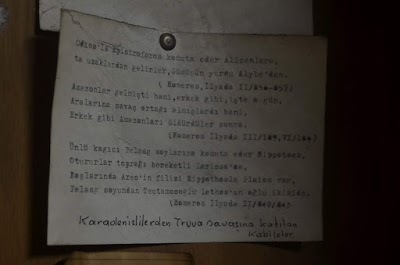 Odios'la Epistrofos komuta eder Alizonlara,
ta uzaklardan gelirler, Gümüşün yurdu Alybe'den.
( Homeros, İlyada II/
Amazonlar gelmişti hani, erkek gibi, işte o gün.
Aralarına savaş ortağı almışlardı beni,
Erkek gibi Amazonları öldürdüler sonra.
(Homeros İlyada III/189, VI/186)
Ünlü kargıcı Pelasg soylarına komuta eder Hippothoos,
Otururlar toprağı bereketli Larissa'da,
Başlarında Ares'in filizi Hippothoosla Plaios var,
Pelasg soyundan Teutamosoğlu Lethos'un oğlu ikiside.
(Homeros İlyada II/
Karadenizlilerden Truva savaşına katılan
Kabileler